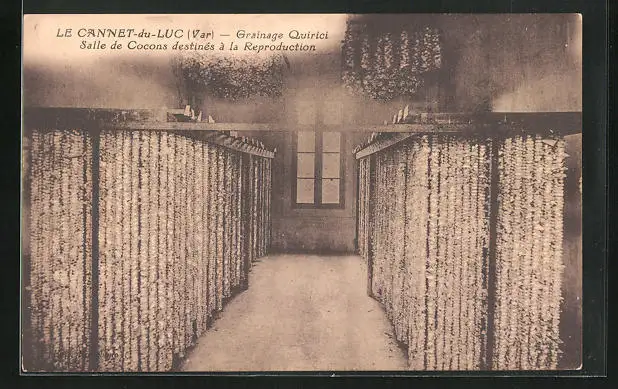 LE CANNET-du-LUC (Var) — Grainage Quirici
Salle de Cocons destinés à la Reproduction